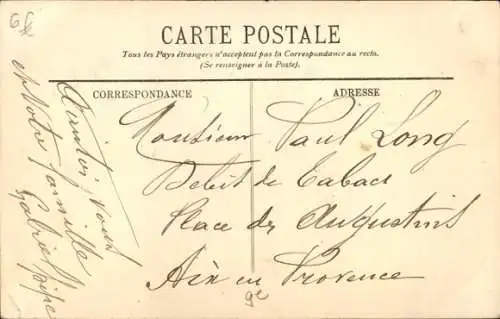 CARTE POSTALE
Tous les Pays étrangers n'acceptent pas la Correspondance au recto.
(Se renseigner à la Poste).
CORRESPONDANCE
ADRESSE
Monsieur Paul Long
Debit de Tabac
Place des Augustins
Aix en Provence
vous
et Votre famille
Gabriel
ge